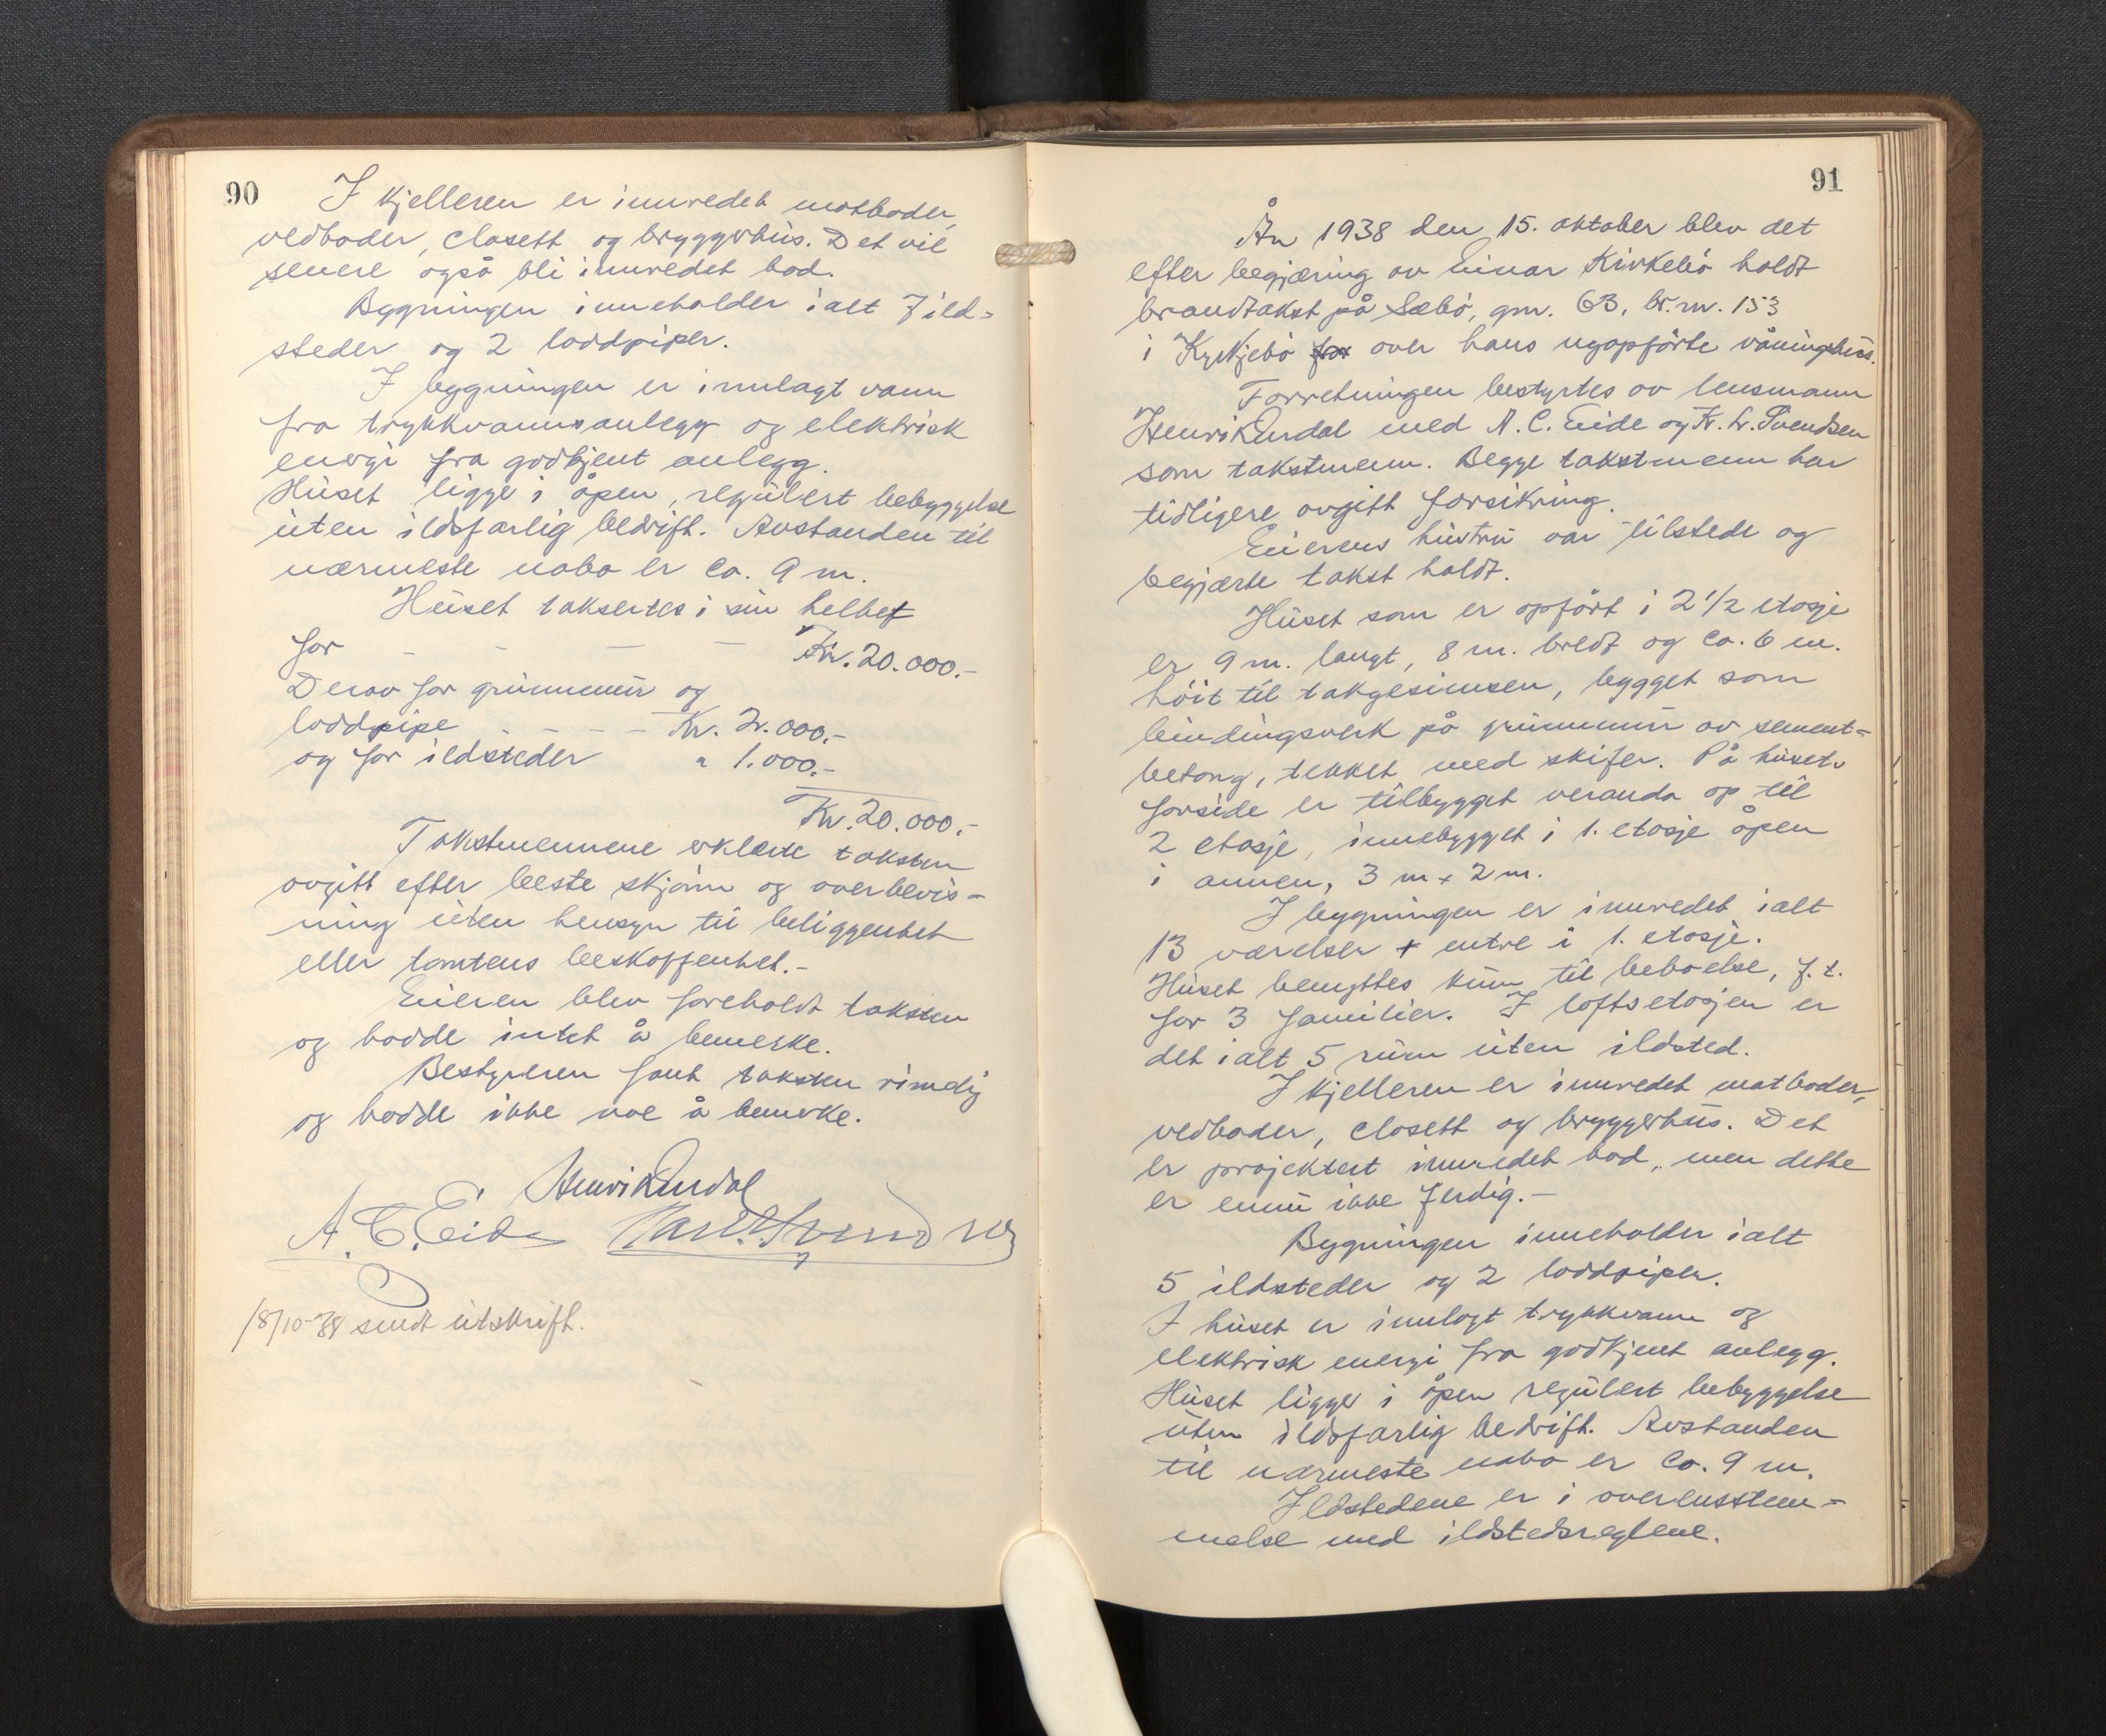 90
I kjelleren er innredet matboder,
vedboder, closett og bryggerhus. Det vil
senere også bli innredet bad.
Bygningen inneholder ialt 7 ild-
steder og 2 loddpiper.
I bygningen er innlagt vann
fra trykkvannsanlegg og elektrisk
energi fra godkjent anlegg.
Huset ligge i åpen, regulert bebyggelse
uten ildsfarlig bedrift. Avstanden til
nærmeste nabo er ca. 9 m.
Huset taksertes i sin helhet
for - - - - Kr. 20.000.-
Derav for grunnmur og
loddpipe - - - - Kr. 2.000.-
og for ildsteder " 1.000.-
Kr. 20.000.-
Takstmennene erklærte taksten
avgitt efter beste skjønn og overbevis-
ning uten hensyn til beliggenhet
eller tomtens beskaffenhet.-
Eieren blev foreholdt taksten
og hadde intet å bemerke.
Bestyreren fant taksten rimelig
og hadde ikke noe å bemerke.
Henrik Undal
A. C. Eide Karl L. Svendsen
18/10-38 sendt utskrift.
91
År 1938 den 15. oktober blev det
efter begjæring av Einar Kirkebö holdt
brandtakst på Sæbö, gnr. 63, br. nr. 153
i Kyrkjebö for over hans nyopförte våningshus.
Forretningen bestyrtes av lensmann
Henrik Undal med A. C. Eide og K. L. Svendsen
som takstmenn. Begge takstmenn har
tidligere avgitt forsikring.
Eierens hustru var tilstede og
begjærte takst holdt.
Huset som er opfört i 2 1/2 etasje
er 9 m. langt, 8 m. bredt og ca. 6 m.
höit til takgesimsen, bygget som
bindingsverk på grunnmur av sement-
betong, tekket med skifer. På husets
forside er tilbygget veranda op til
2 etasje, innebygget i 1. etasje åpen
i annen, 3 m x 2 m.
I bygningen er innredet ialt
13 værelser + entre i 1. etasje.
Huset benyttes kun til beboelse, f. t.
for 3 familier. I loftsetasjen er
det ialt 5 rum uten ildsted.
I kjelleren er innredet matboder,
vedboder, closett og bryggerhus. Det
er projektert innredet bad, men dette
er ennu ikke ferdig.-
Bygningen inneholder ialt
5 ildsteder og 2 loddpiper.
I huset er innlagt trykkvann og
elektrisk energi fra godkjent anlegg.
Huset ligger i åpen regulert bebyggelse
uten ildsfarlig bedrift. Avstanden
til nærmeste nabo er ca. 9 m.
Ildstedene er i overensstem-
melse med ildstedsreglene.